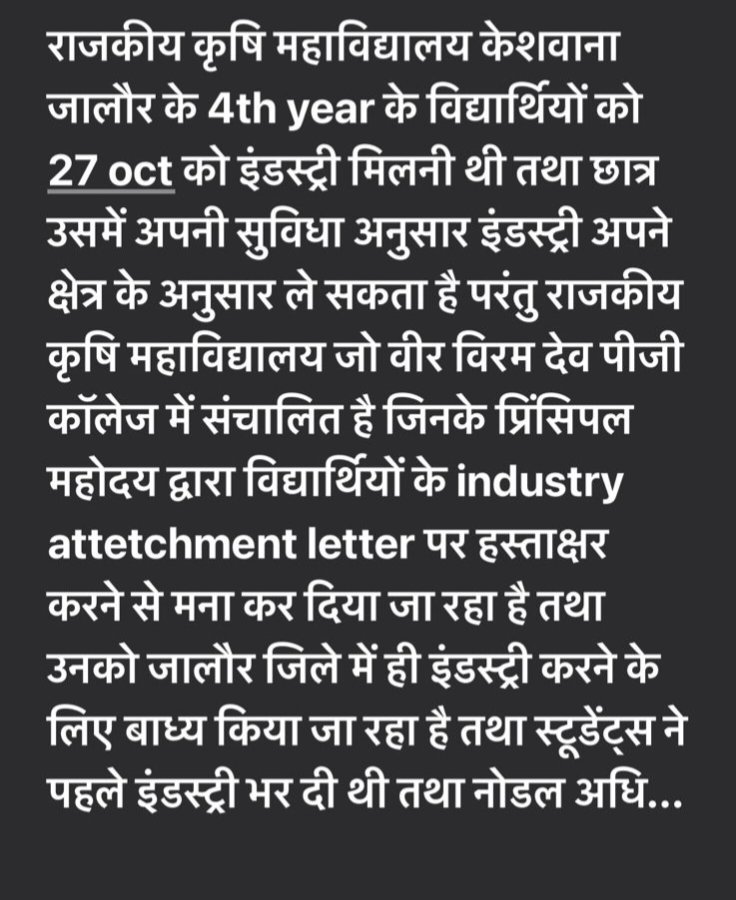 राजकीय कृषि महाविद्यालय केशवाना
जालौर के 4th year के विद्यार्थियों को
27 oct को इंडस्ट्री मिलनी थी तथा छात्र
उसमें अपनी सुविधा अनुसार इंडस्ट्री अपने
क्षेत्र के अनुसार ले सकता है परंतु राजकीय
कृषि महाविद्यालय जो वीर विरम देव पीजी
कॉलेज में संचालित है जिनके प्रिंसिपल
महोदय द्वारा विद्यार्थियों के industry
attetchment letter पर हस्ताक्षर
करने से मना कर दिया जा रहा है तथा
उनको जालौर जिले में ही इंडस्ट्री करने के
लिए बाध्य किया जा रहा है तथा स्टूडेंट्स ने
पहले इंडस्ट्री भर दी थी तथा नोडल अधि...